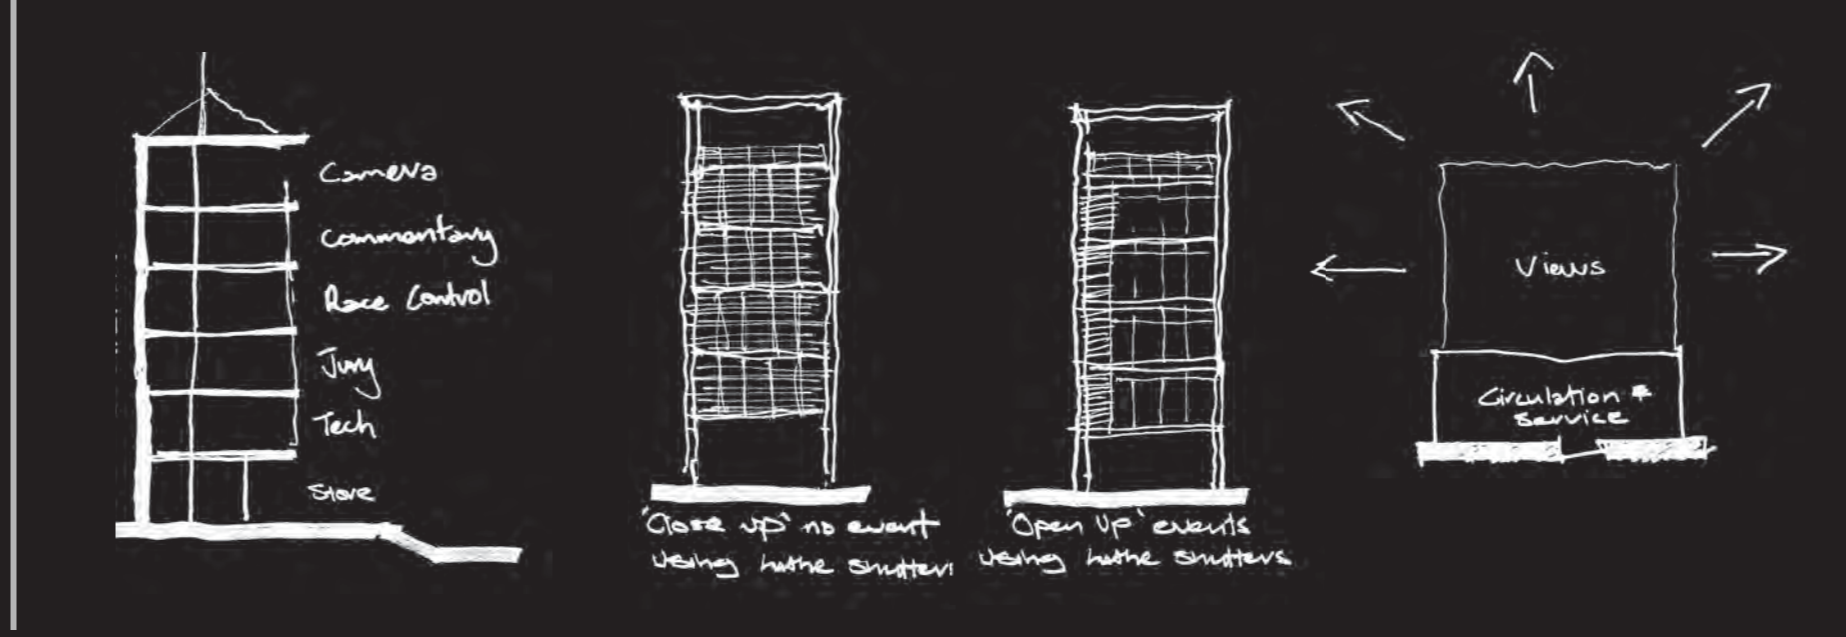 Camera
Commentary
Race Control
Jury
Tech
Store
'Close up' no event
using lathe shutters
'Open Up' events
using lathe shutters
Views
Circulation &
Service